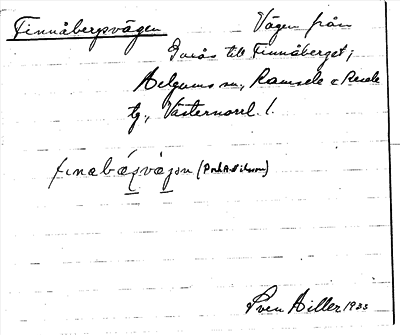 Finnåbergsvägen Vägen från
Invås till Finnåberget;
Helgums sn, Ramsele o Resele
tg, Västernorrl. l.
finabærvægen (
Sven Hiller 1933